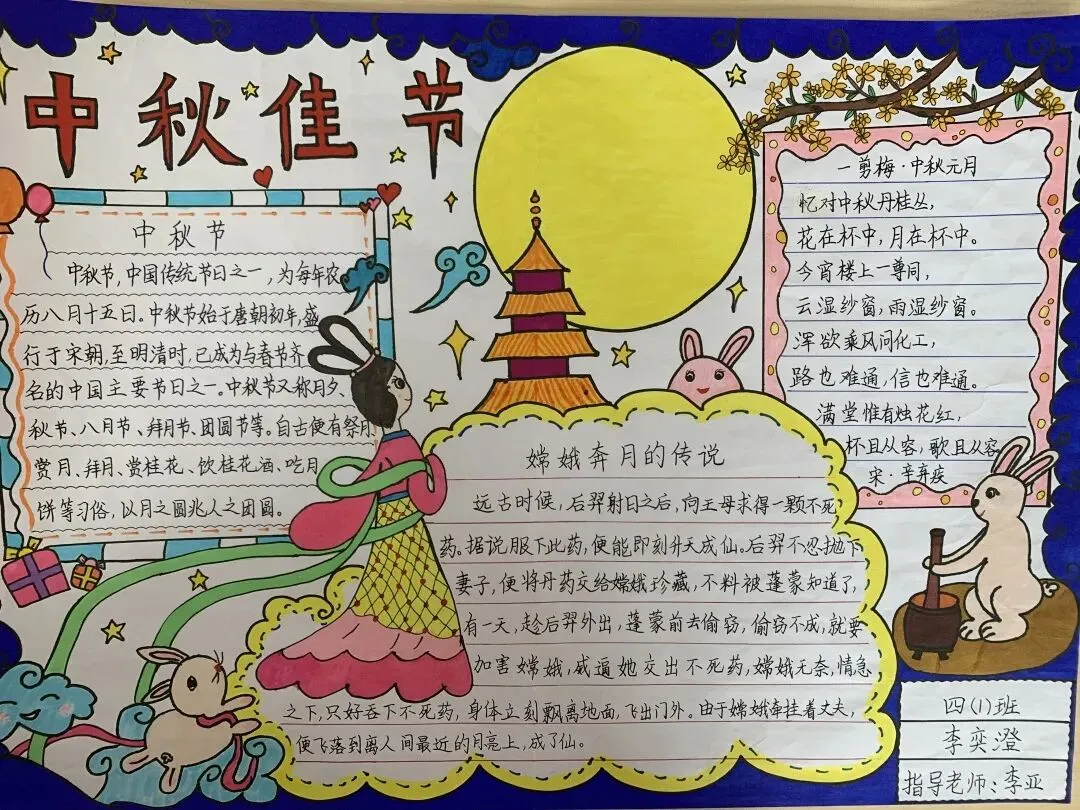 中秋佳节
中秋节
中秋节，中国传统节日之一，为每年农
历八月十五日。中秋节始于唐朝初年，盛
行于宋朝，至明清时，已成为与春节齐
名的中国主要节日之一。中秋节又称月夕、
秋节、八月节、拜月节、团圆节等。自古便有祭月、
赏月、拜月、赏桂花、饮桂花酒、吃月
饼等习俗，以月之圆兆人之团圆。
嫦娥奔月的传说
远古时候，后羿射日之后，向王母求得一颗不死
药。据说服下此药，便能即刻升天成仙。后羿不忍抛下
妻子，便将丹药交给嫦娥珍藏，不料被蓬蒙知道了，
有一天，趁后羿外出，蓬蒙前去偷窃，偷窃不成，就要
加害嫦娥，威逼她交出不死药，嫦娥无奈，情急
之下，只好吞下不死药，身体立刻飘离地面，飞出门外。由于嫦娥牵挂着丈夫，
便飞落到离人间最近的月亮上，成了仙。
一剪梅·中秋元月
忆对中秋丹桂丛，
花在杯中，月在杯中。
今宵楼上一尊同，
云湿纱窗，雨湿纱窗。
浑欲乘风问化工，
路也难通，信也难通。
满堂惟有烛花红，
杯且从容，歌且从容
宋·辛弃疾
四(1)班
李奕澄
指导老师：李亚